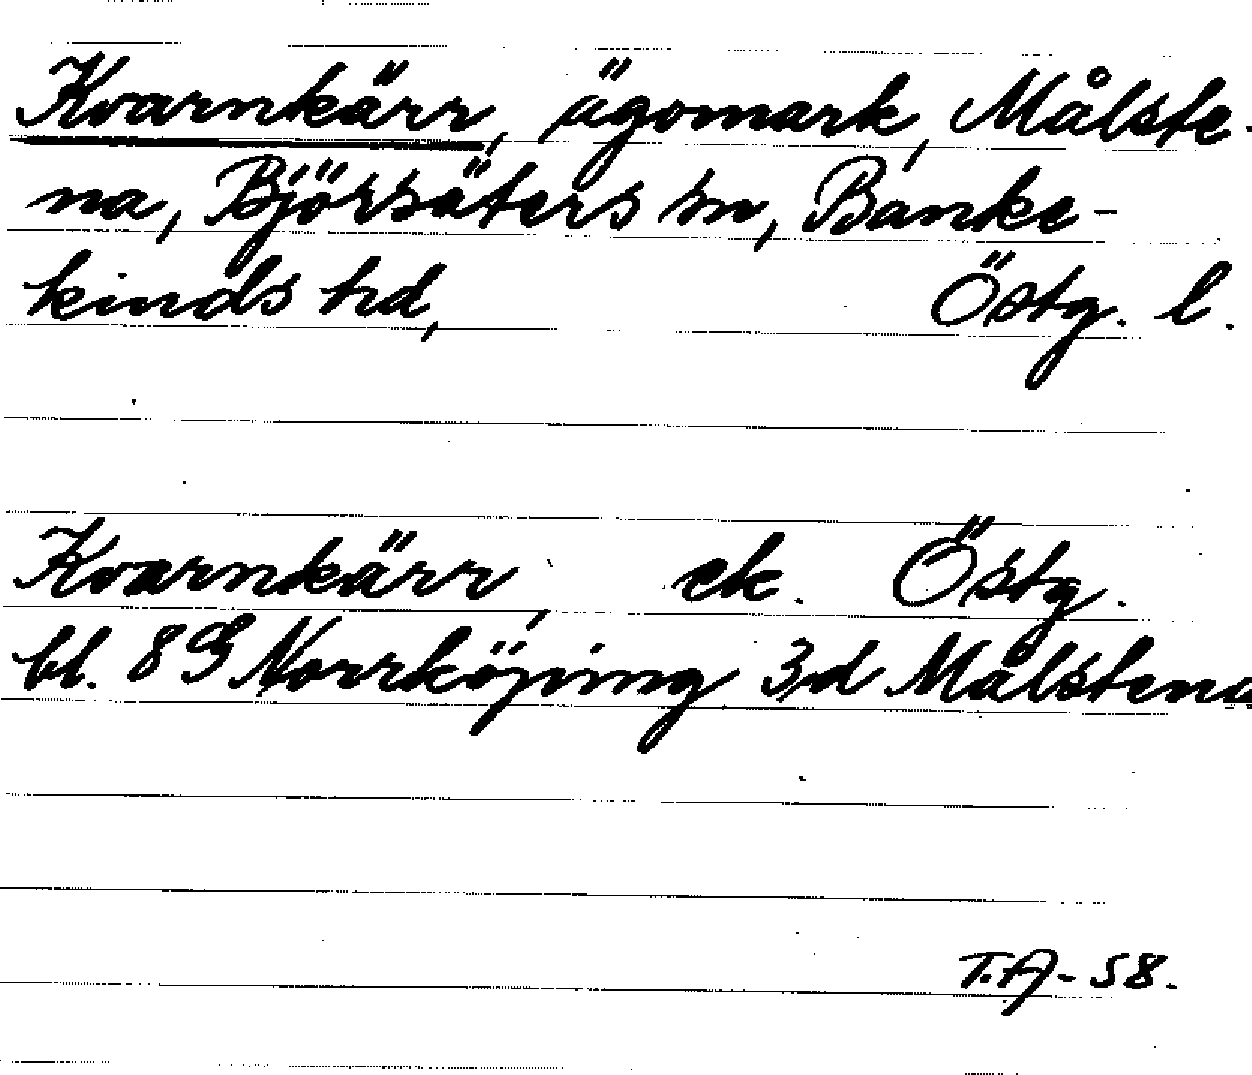 Kvarnkärr, ägomark, Målste-
na, Björsäters sn, Banke-
kinds hd, Östg. l.
Kvarnkärr, ek. Östg.
bl. 8 G Norrköping 3d Målstena
T.A-58.